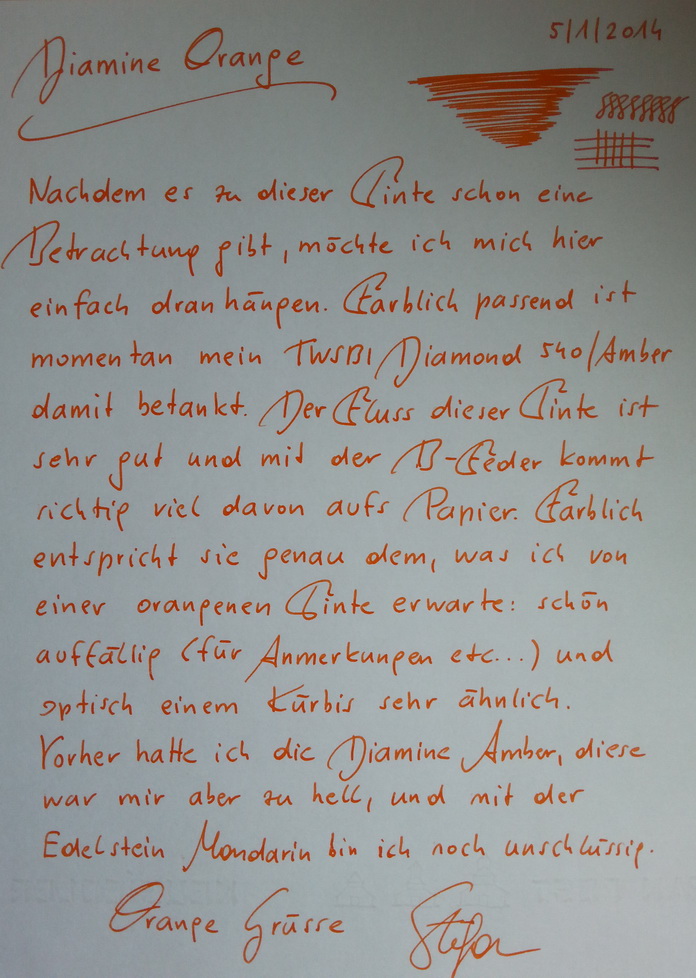 5/1/2014
Diamine Orange
Nachdem es zu dieser Tinte schon eine
Betrachtung gibt, möchte ich mich hier
einfach dranhängen. Farblich passend ist
momentan mein TWSBI Diamond 540/Amber
damit betankt. Der Fluss dieser Tinte ist
sehr gut und mit der B-Feder kommt
richtig viel davon aufs Papier. Farblich
entspricht sie genau dem, was ich von
einer orangenen Tinte erwarte: schön
auffällig (für Anmerkungen etc...) und
optisch einem Kürbis sehr ähnlich.
Vorher hatte ich die Diamine Amber, diese
war mir aber zu hell, und mit der
Edelstein Mandarin bin ich noch unschlüssig.
Orange Grüsse Stefan